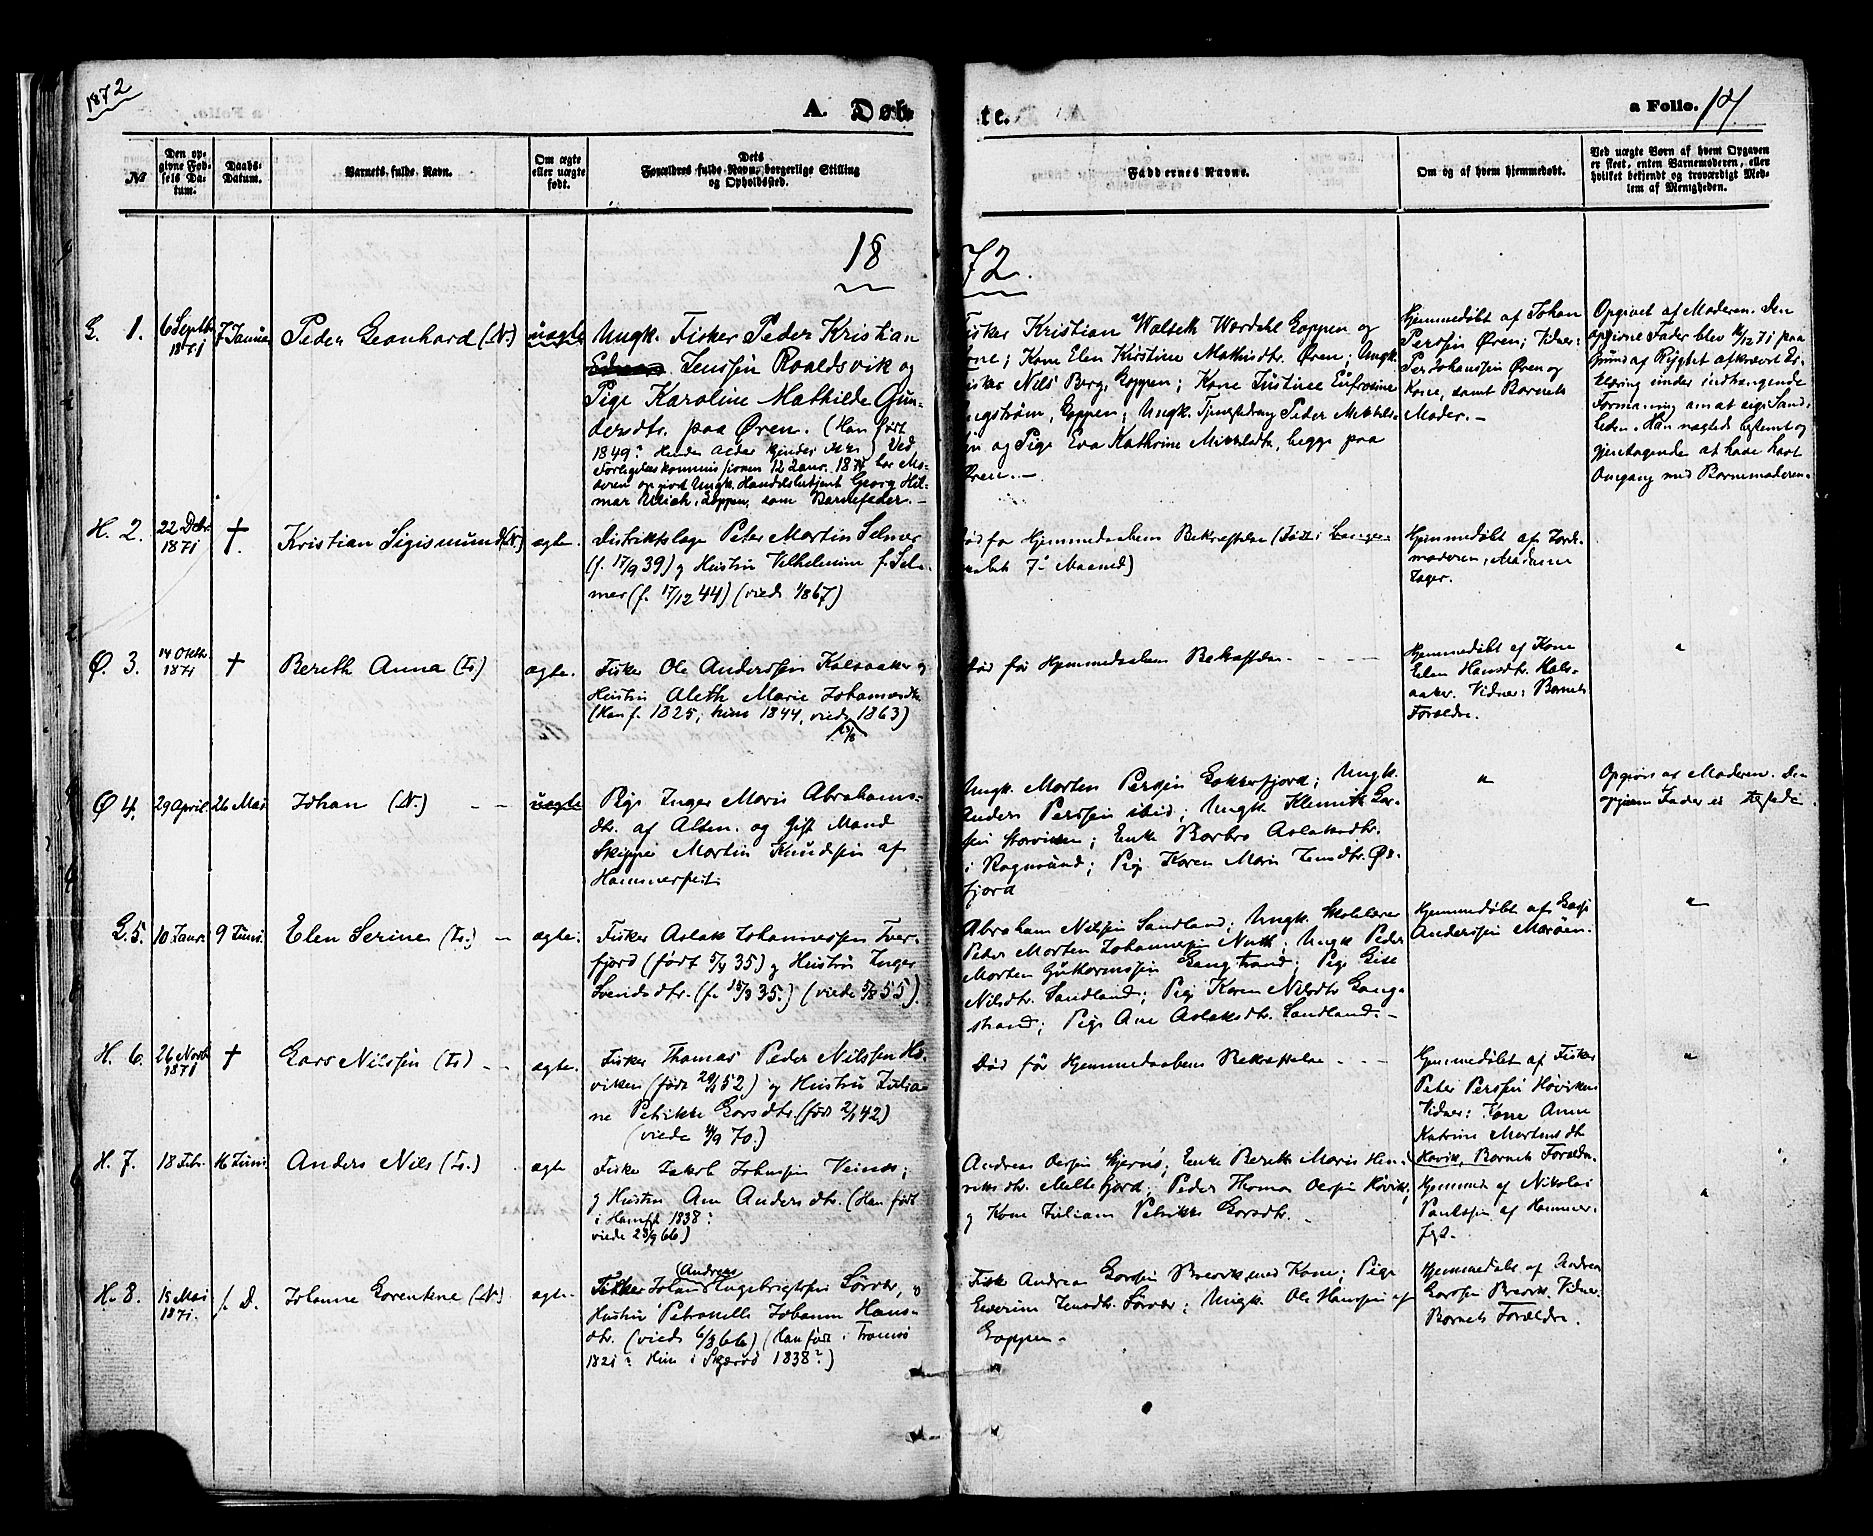 1872
A. Døbte.
a Folio. 17
№
Den opgivne Fødsels Datum.
Daabs-Datum.
Barnets fulde Navn.
Om ægte eller uægte født.
Dets Forældres fulde Navn, borgerlige Stilling og Opholdssted.
Faddernes Navne.
Om og af hvem hjemmedøbt.
Ved uægte Børn af hvem Opgaven er skeet, enten Barnemoderen, eller hvilket bekjendt og troværdigt Medlem af Menigheden.
1872.
G. 1.
6 Septbr 1871
7 Januar
Peder Leonhard (N.)
uægte
Ungk. Fisker Peder Kristian
Jenssen Roaldsvik og
Pige Karoline Mathilde Gun-
dersdtr. paa Øren. (Han født
1849? Hendes Alder kjendes ikke.) Ved
Forligelseskommissionen 12 Januar 1872 har Mo-
deren opgivet Ungk. Handelsbetjent Georg Hil-
mar Ulich, Loppen, som Barnefader.-
Fisker Kristian Wardahl Loppen og
Kone; Kone Elen Kirstine Mathisdtr. Øren; Ungk.
Fisker Nils Berg, Loppen; Kone Justine Eufrosine
Loppen; Ungk. Peder Mikkels-
sen og Pige Eva Kathrine Mikkelsdtr, begge paa
Øren.-
Hjemmedøbt af Johan
Perssen Øren; Vidner:
Per Johanssen Øren og
Kone, samt Barnets
Moder.-
Opgivet af Moderen. Den
opgivne Fader blev paa
Grund af Rygtet afkrævet Er-
klæring under indtrængende
Formaning om at sige Sand-
heden. Han nægtede bestemt og
gjentagende at have havt
Omgang med Barnemoderen.
H. 2.
22 Debr. 1871
†.
Kristian Sigismund (N)
ægte.
Distriktslæge Peter Martin Selmer
(f. 17/9 39) og Hustru Vilhelmine f. Sel-
mer (f. 17/12 44) (viede 1867)
Død før Hjemmedaabens Bekræftelse (Født i
7de Maaned)
Hjemmedøbt af Jorde-
moderen, Madame
Lager.
Ø. 3.
14 Oktb. 1871
†
Bereth Anna (Fs.)
ægte.
Fisker Ole Anderssen Kalsaaker og
Hustru Aleth Marie Johannesdtr
(Han f. 1825, hun 1844, viede 1863)
Død før Hjemmedaabens Bekræftelse.
Hjemmedøbt af Kone
Elen Hansdtr. Kals-
aaker. Vidner: Barnets
Forældre.
"
Ø 4.
29 April.
26 Mai
Johan (N.)
uægte
Pige Inger Maris Abrahams-
dtr. af Alten. og Gift Mand
Skipper Martin Knudssen af
Hammerfest.
Ungk. Morten Perssen Lokkerfjord; Ungk.
Anders Perssen ibid; Ungk. Klemit Lar-
sen Storviken; Enke Barbro Aslaksdtr.
i Rognsund; Pige Karen Maris Jensdtr. Øx-
fjord
"
Opgivet af Moderen. Den
opgivne Fader er
G. 5.
10 Janr.
9 Juni
Elen Serine (Fs.)
ægte.
Fisker Aslak Johannessen Tver-
fjord (født 5/4 35) og Hustru Inger
Svendsdtr. (f. 15/3 35.) (viede 5/8 55).
Abraham Nilssen Sandland; Ungk. Skolelærer
Peder Morten Johannessen ; Ungk. Peder
Morten Guttormssen Langstrand; Pige Lise
Nilsdtr. Sandland; Pige Karen Nilsdtr Lang-
strand; Pige Ane Aslaksdtr. Sandland.-
Hjemmedøbt af
Anderssen Marøen.
"
H. 6.
26 Novb 1871
†
Lars Nilssen (Fs.)
ægte.
Fisker Thomas Peder Nilssen Hø-
viken (født 52) og Hustru Julia-
ne Petrikke Larsdtr. (født 2/1 42)
(viede 4/9 70.)
Død før Hjemmedaabens Bekræftelse
Hjemmedøbt af Fisker
Peter Perssen Høviken
Vidner: Kone Anne
Katrine Mortensdtr
Høvik, Barnets Forældre.
"
H. 7.
18 Febr.
16 Juni
Anders Nils (Fs.)
ægte
Fisker Jakob Johnssen Veines;
og Hustru Ane Andersdtr. (Han født
i Hamfst 1838?
viede 23/9 66)
Andreas Olssen ; Enke Bereth Maris Hen-
riksdtr. Meltefjord; Peder Thomas Olssen Høviken,
og Kone Juliane Petrikke Larsdtr.
Hjemmed. af Nikolai
Paulssen af Hammer-
fest.
"
H. 8.
15 Mai 1871.
s. D.
Johanne Lorentine (N.)
ægte.
Fisker Johan Andreas Engebrigtssen Sørvær, og
Hustru Petronelle Johanne Hans-
dtr. (viede 6/3 66) (Han født i Tromsø
1821? Hun i Skjervø 1838?)
Fisker Andreas Larssen Brevik med Kone; Pige
Severine Jensdtr. Sørvær; Ungk. Ole Hanssen af
Loppen.-
Hjemmedøbt af Andreas
Larssen Brevik. Vidner:
Barnets Forældre.